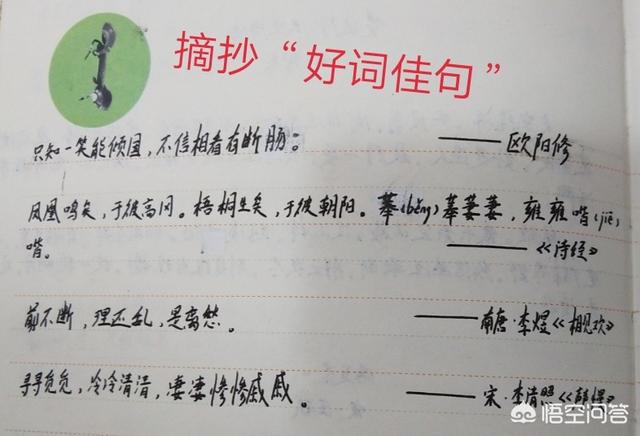 摘抄“好词佳句”
只知一笑能倾国，不信相看有断肠。
——欧阳修
凤凰鸣矣，于彼高冈。梧桐生矣，于彼朝阳。菶(běng)菶萋萋，雍雍喈(jiē)
喈。
——《诗经》
剪不断，理还乱，是离愁。
——南唐·李煜《相见欢》
寻寻觅觅，冷冷清清，凄凄惨惨戚戚。
——宋·李清照《
悟空问答